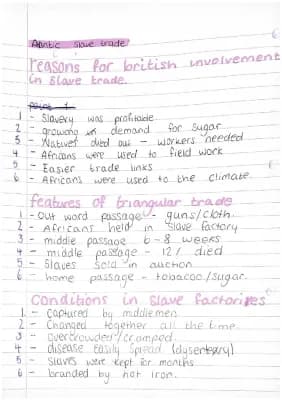 Atlantic slave trade
reasons for british involvement
in slave trade.
point 1
1 - Slavery was profitable
2 - growing in demand for sugar
3 - Natives died out - workers needed
4 - Africans were used to field work
5 - Easier trade links
6 - Africans were used to the climate
features of triangular trade
1 - Out word passage - guns/cloth.
2 - Africans held in slave factory
3 - middle passage 6-8 weeks
4 - middle passage - 12% died
5 - Slaves sold in auction
6 - home passage - tobacoo/sugar.
Conditions in slave factories
1 - captured by middlemen.
2 - Changed together all the time.
3 - overcrowded/cramped
4 - disease easily spread (dysentery)
5 - slaves were kept for months
6 - branded by hot iron.